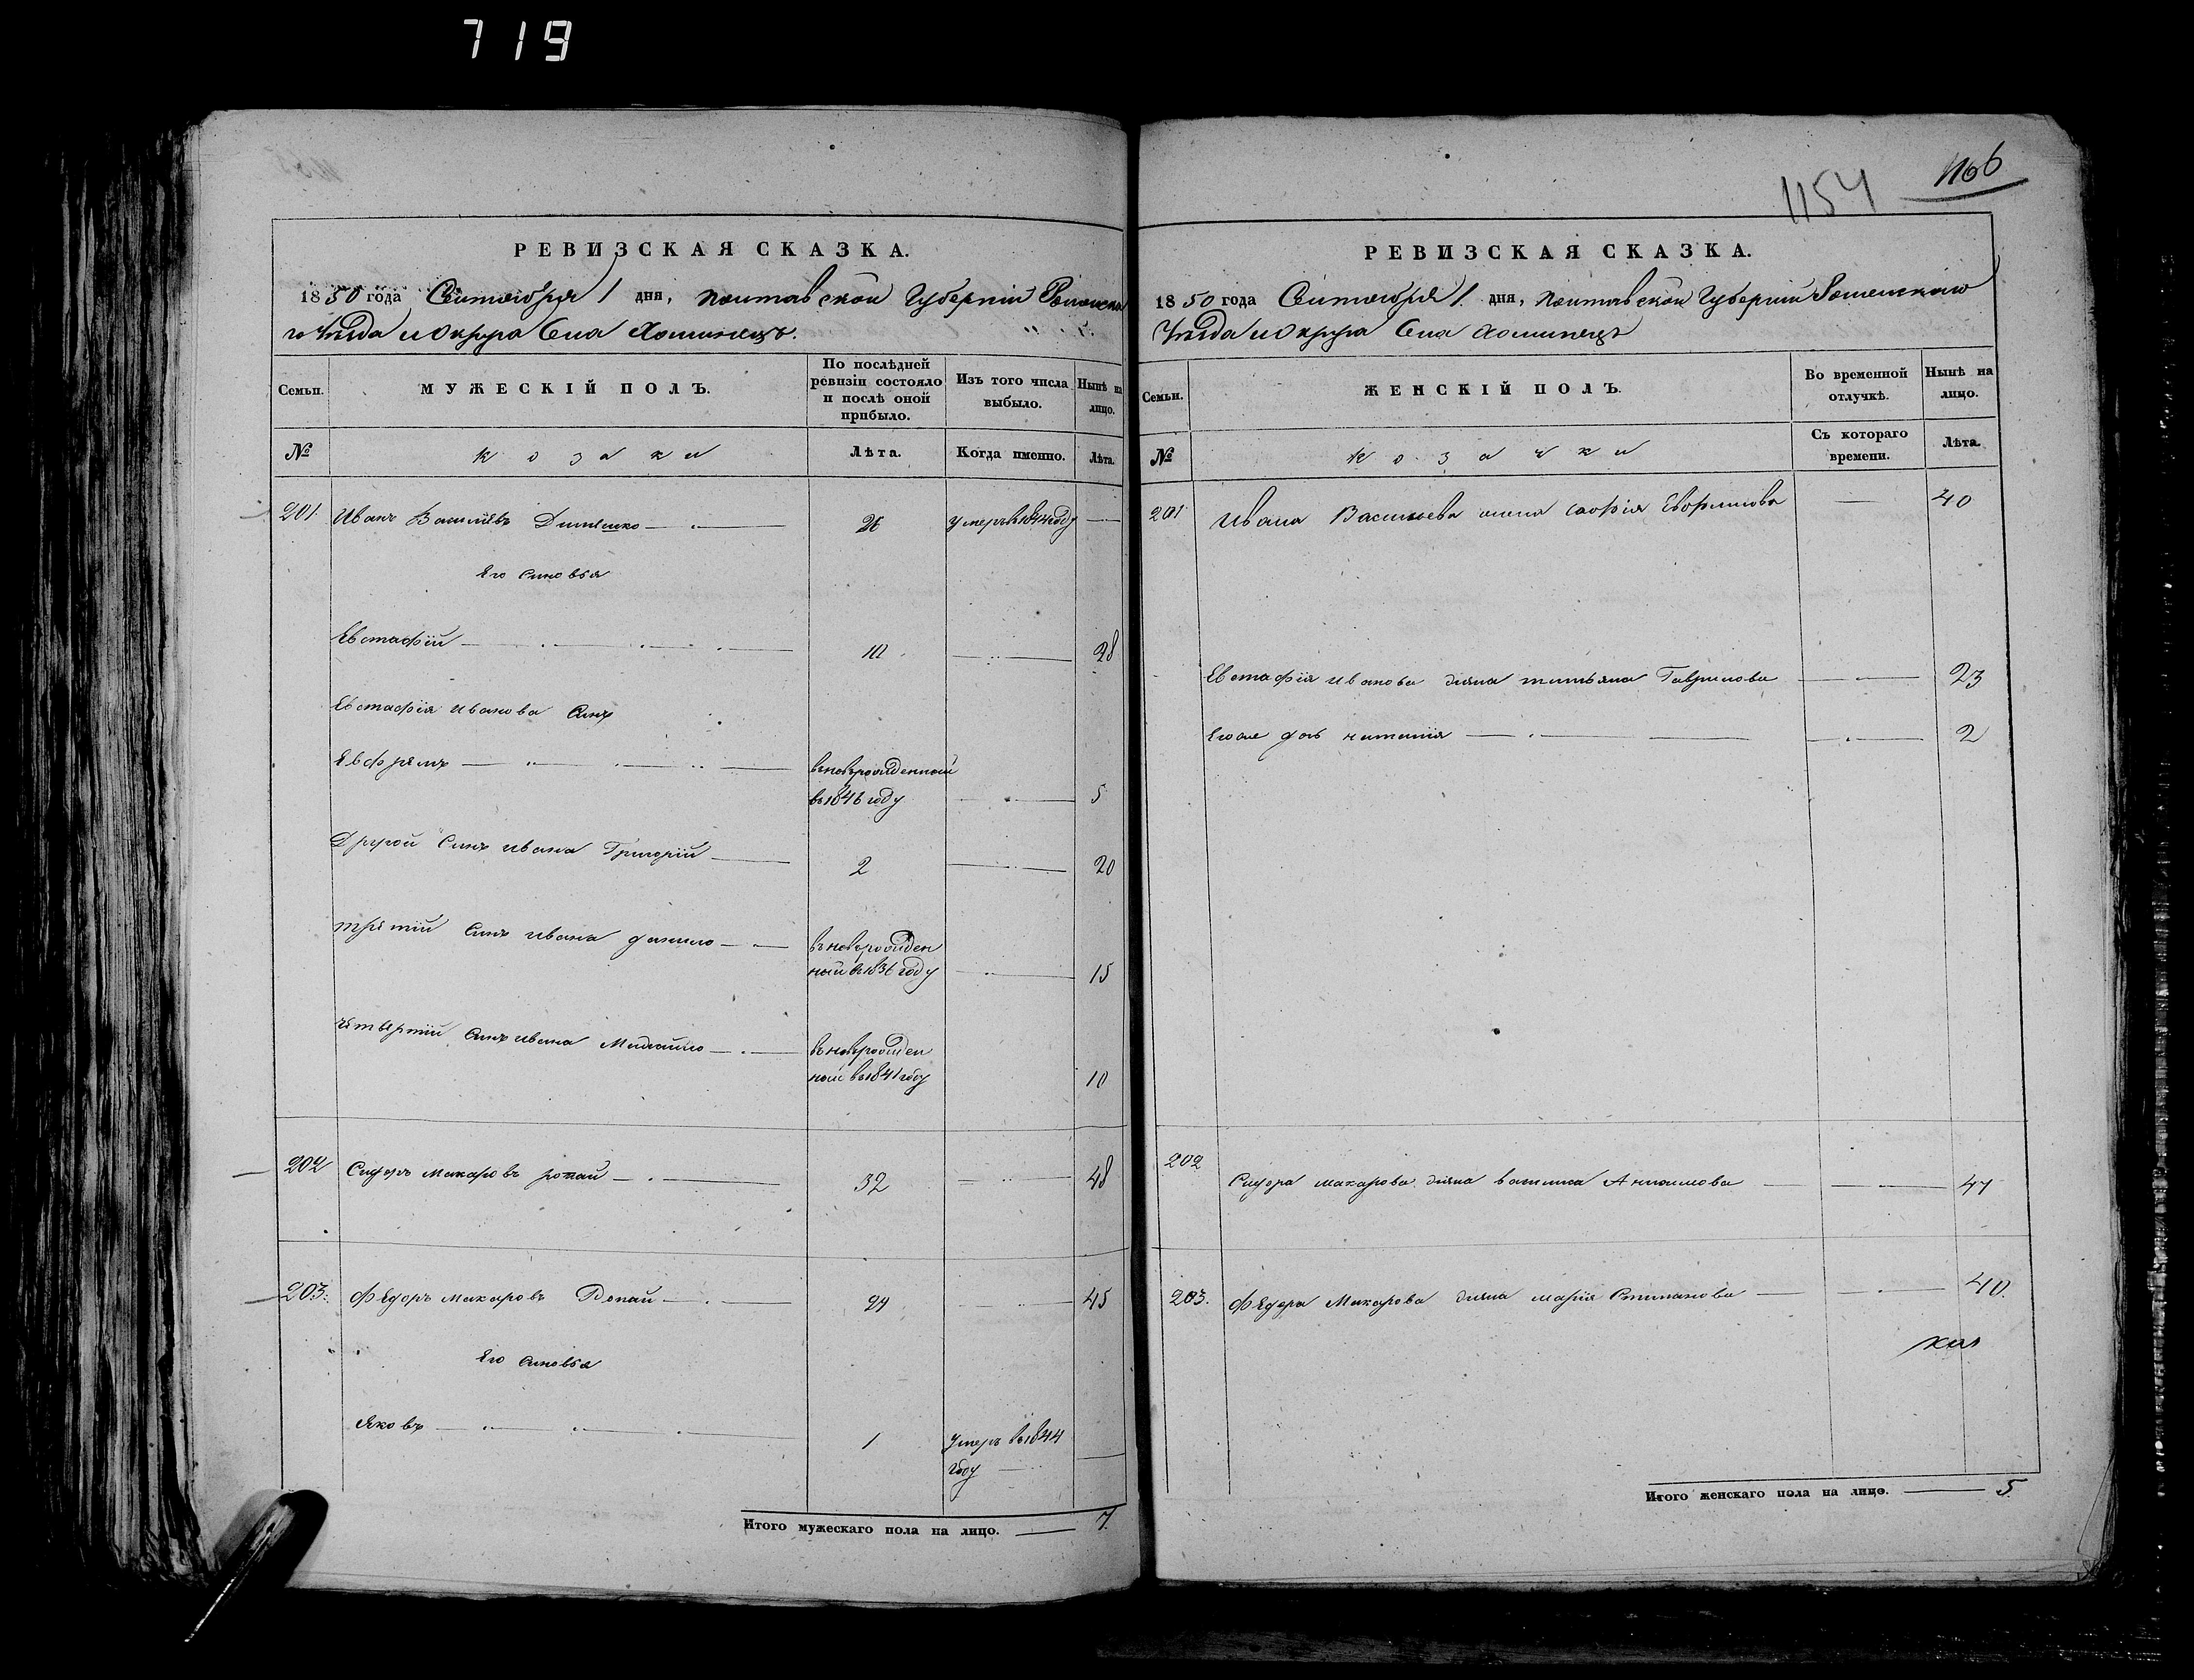 719
1154
1166
РЕВИЗСКАЯ СКАЗКА.
1850 года Сентября 1 дня, Полтавской Губернии Роменска
го Уѣзда и Округа Села Хоминецъ.
Семьи.
МУЖЕСКІЙ ПОЛЪ.
По послѣдней ревизіи состояло и послѣ оной прибыло.
Изъ того числа выбыло.
Нынѣ на лицо.
№
козаки
Лѣта.
Когда именно.
Лѣта.
201 Иванъ Васильевъ 26 Умеръ в 1844 году —
Его Сыновья
Евстафій 10 28
Евстафія Иванова Сынъ
Ефремъ вновьрожденный
въ 1846 году 5
Другой Сынъ Ивана Григорій 2 20
третій Сынъ Ивана данило вновьрожден
ный въ 1836 году 15
четвертій Сынъ Ивана Михайло вновьрожден
ный въ 1841 году 10
202 Сидоръ Макаровъ 32 48
203. Федоръ Макаровъ 29 45
Его Сыновья
Яковъ 1 Умеръ въ 1844
году
Итого мужескаго пола на лицо. 7.
РЕВИЗСКАЯ СКАЗКА.
1850 года Сентября 1. дня, Полтавской Губерніи Роменскаго
Уѣзда и Округа Села Хоминецъ
Семьи.
ЖЕНСКІЙ ПОЛЪ.
Во временной отлучкѣ.
Нынѣ на лицо.
№
козачки
Съ котораго времени.
Лѣта.
201 Ивана Васильева жена Софія 40
Евстафія Иванова жена татьяна Гаврилова 23
Егоже дочь 2
202
Сидора Макарова жена василиса Анисимова 47
203. Федора Макарова жена марія Степанова 40.
Итого женскаго пола на лицо. 5.